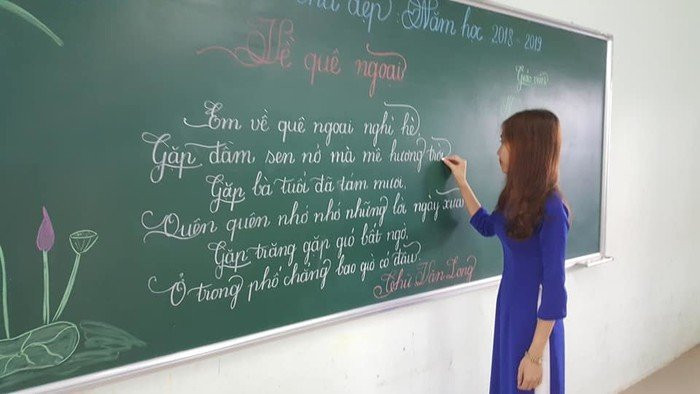 đẹp Năm học 2018 - 2019
Về quê ngoại
Giáo viên
Em về quê ngoại nghỉ hè,
Gặp đầm sen nở mà mê hương trời
Gặp bà tuổi đã tám mươi,
Quên quên nhớ nhớ những lời ngày xưa
Gặp trăng gặp gió bất ngờ,
Ở trong phố chẳng bao giờ có đâu
Chử Văn Long